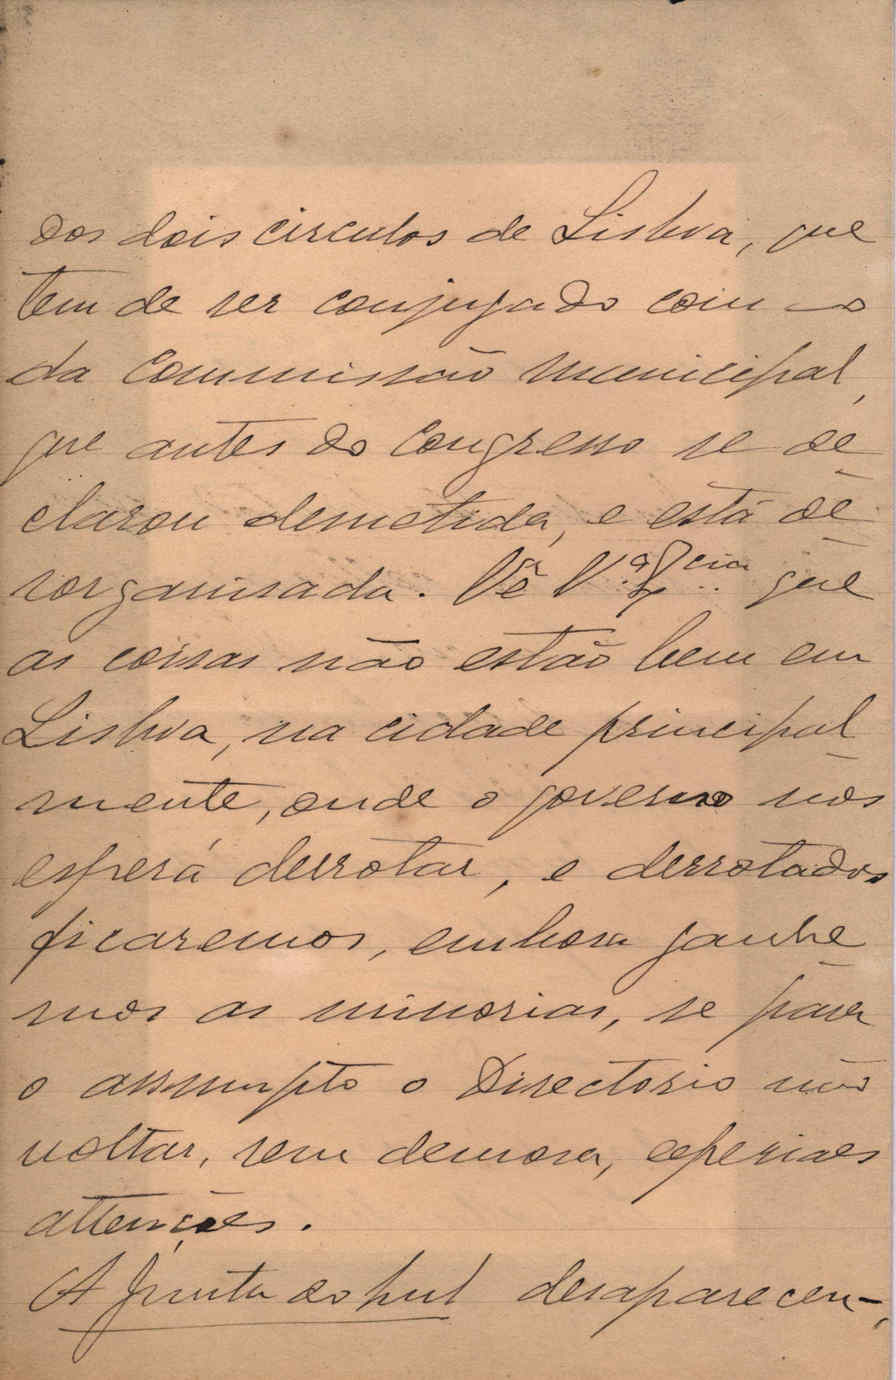 dos dois circulos de Lisboa, que
tem de ser conjugado com o
da Commissão Municipal,
que antes do Congresso se de
clarou demetida, e está de
sorganisada. Vê V.ª Ex.cia que
as coisas não estão bem em
Lisboa, na cidade principal
mente, onde o governo nos
espera derrotar, e derrotados
ficaremos, embora ganhe
mos as minorias, se para
o assumpto o Directorio não
voltar, sem demora, especiaes
attenções.
A Junta do Sul desapareceu-,